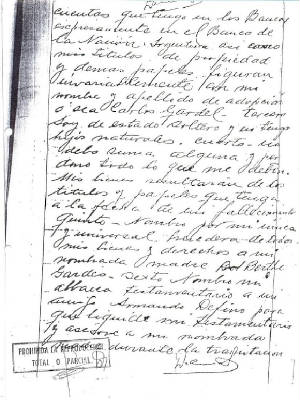 cuentas que tengo en los Bancos
expresamente en el Banco de
La Nación Argentina así como
mis títulos de propiedad
y demás papeles figuran
invariablemente con mi
nombre y apellido de adopción
ó sea Carlos Gardel. tercero
Soy de estado soltero y no tengo
hijos naturales. cuarto no
debo suma alguna y per
dono todo lo que me deben.
Mis bienes resultaran de los
títulos y papeles que tenga
a la fecha de mi fallecimiento
Quinto Nombro por mi única
y universal heredera de todos
mis bienes y derechos a mi
nombrada madre Berthe
Gardes. Sexto Nombro mi
albacea testamentario a mi
amigo Armando Defino para
que liquide mi testamentaria
y asesore a mi nombrada
durante la tramitacion
PROHIBIDA LA REPRODUCCION
TOTAL O PARCIAL